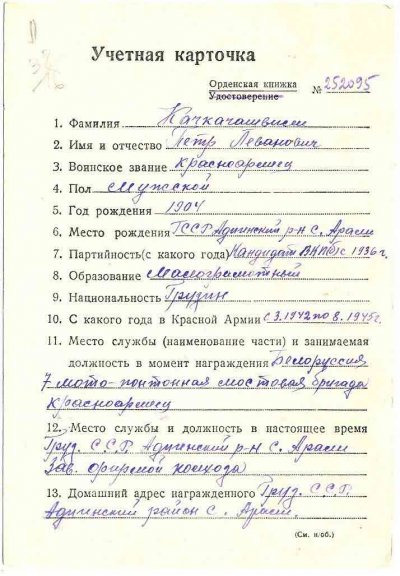 Учетная карточка
Орденская книжка
Удостоверение № 252095
1. Фамилия Качкачашвили
2. Имя и отчество Петр Леванович
3. Воинское звание Красноармец
4. Пол Мужской
5. Год рождения 1904
6. Место рождения ГССР Адигенский р-н с. Арали
7. Партийность(с какого года) Кандидат ВКП(б) с 1936 г.
8. Образование Малограмотный
9. Национальность Грузин
10. С какого года в Красной Армии с 3.1942 по 8.1945г.
11. Место службы (наименование части) и занимаемая
должность в момент награждения Белоруссия
7 мото-понтонная мостовая бригада
Красноармец
12. Место службы и должность в настоящее время
Груз. С.С.Р. Адигенский р-н с. Арали
Зав. фермой колхоза
13. Домашний адрес награжденного Груз. С.С.Р.
Адигенский район с. Арали.
(См. н/об.)